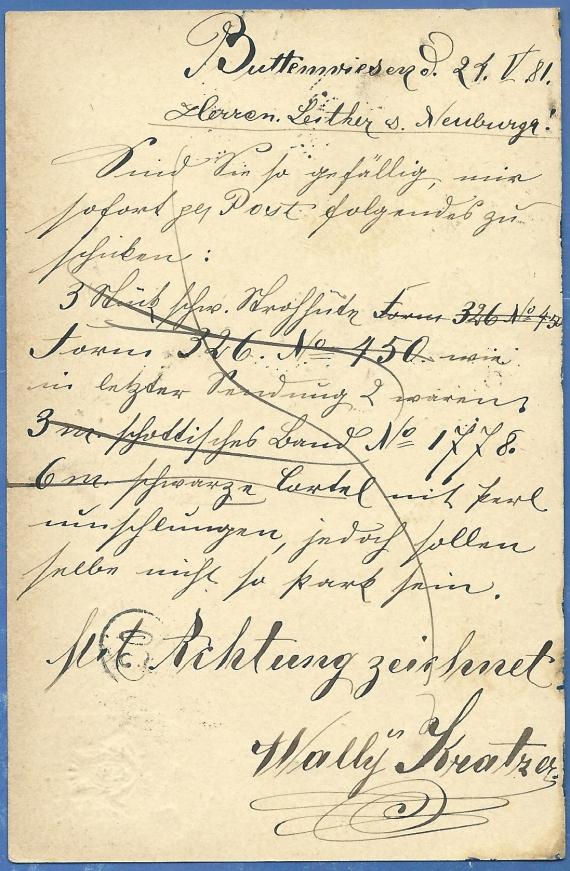 Buttenwiesen d. 21. V. 81.
Herren Leither s. Neuburg a/
Sind Sie so gefällig, mir
sofort per Post folgendes zu
schicken:
3 Stück schw. Strohhüte Form 326 No 450
Form 326. No 450. wie
in letzter Sendung 2 waren,
3 m. schottisches Band No 1778.
6 m. schwarze Cortel mit Perl
umschlungen, jedoch sollen
selbe nicht so stark sein.
Mit Achtung zeichnet
Wally Kratzer